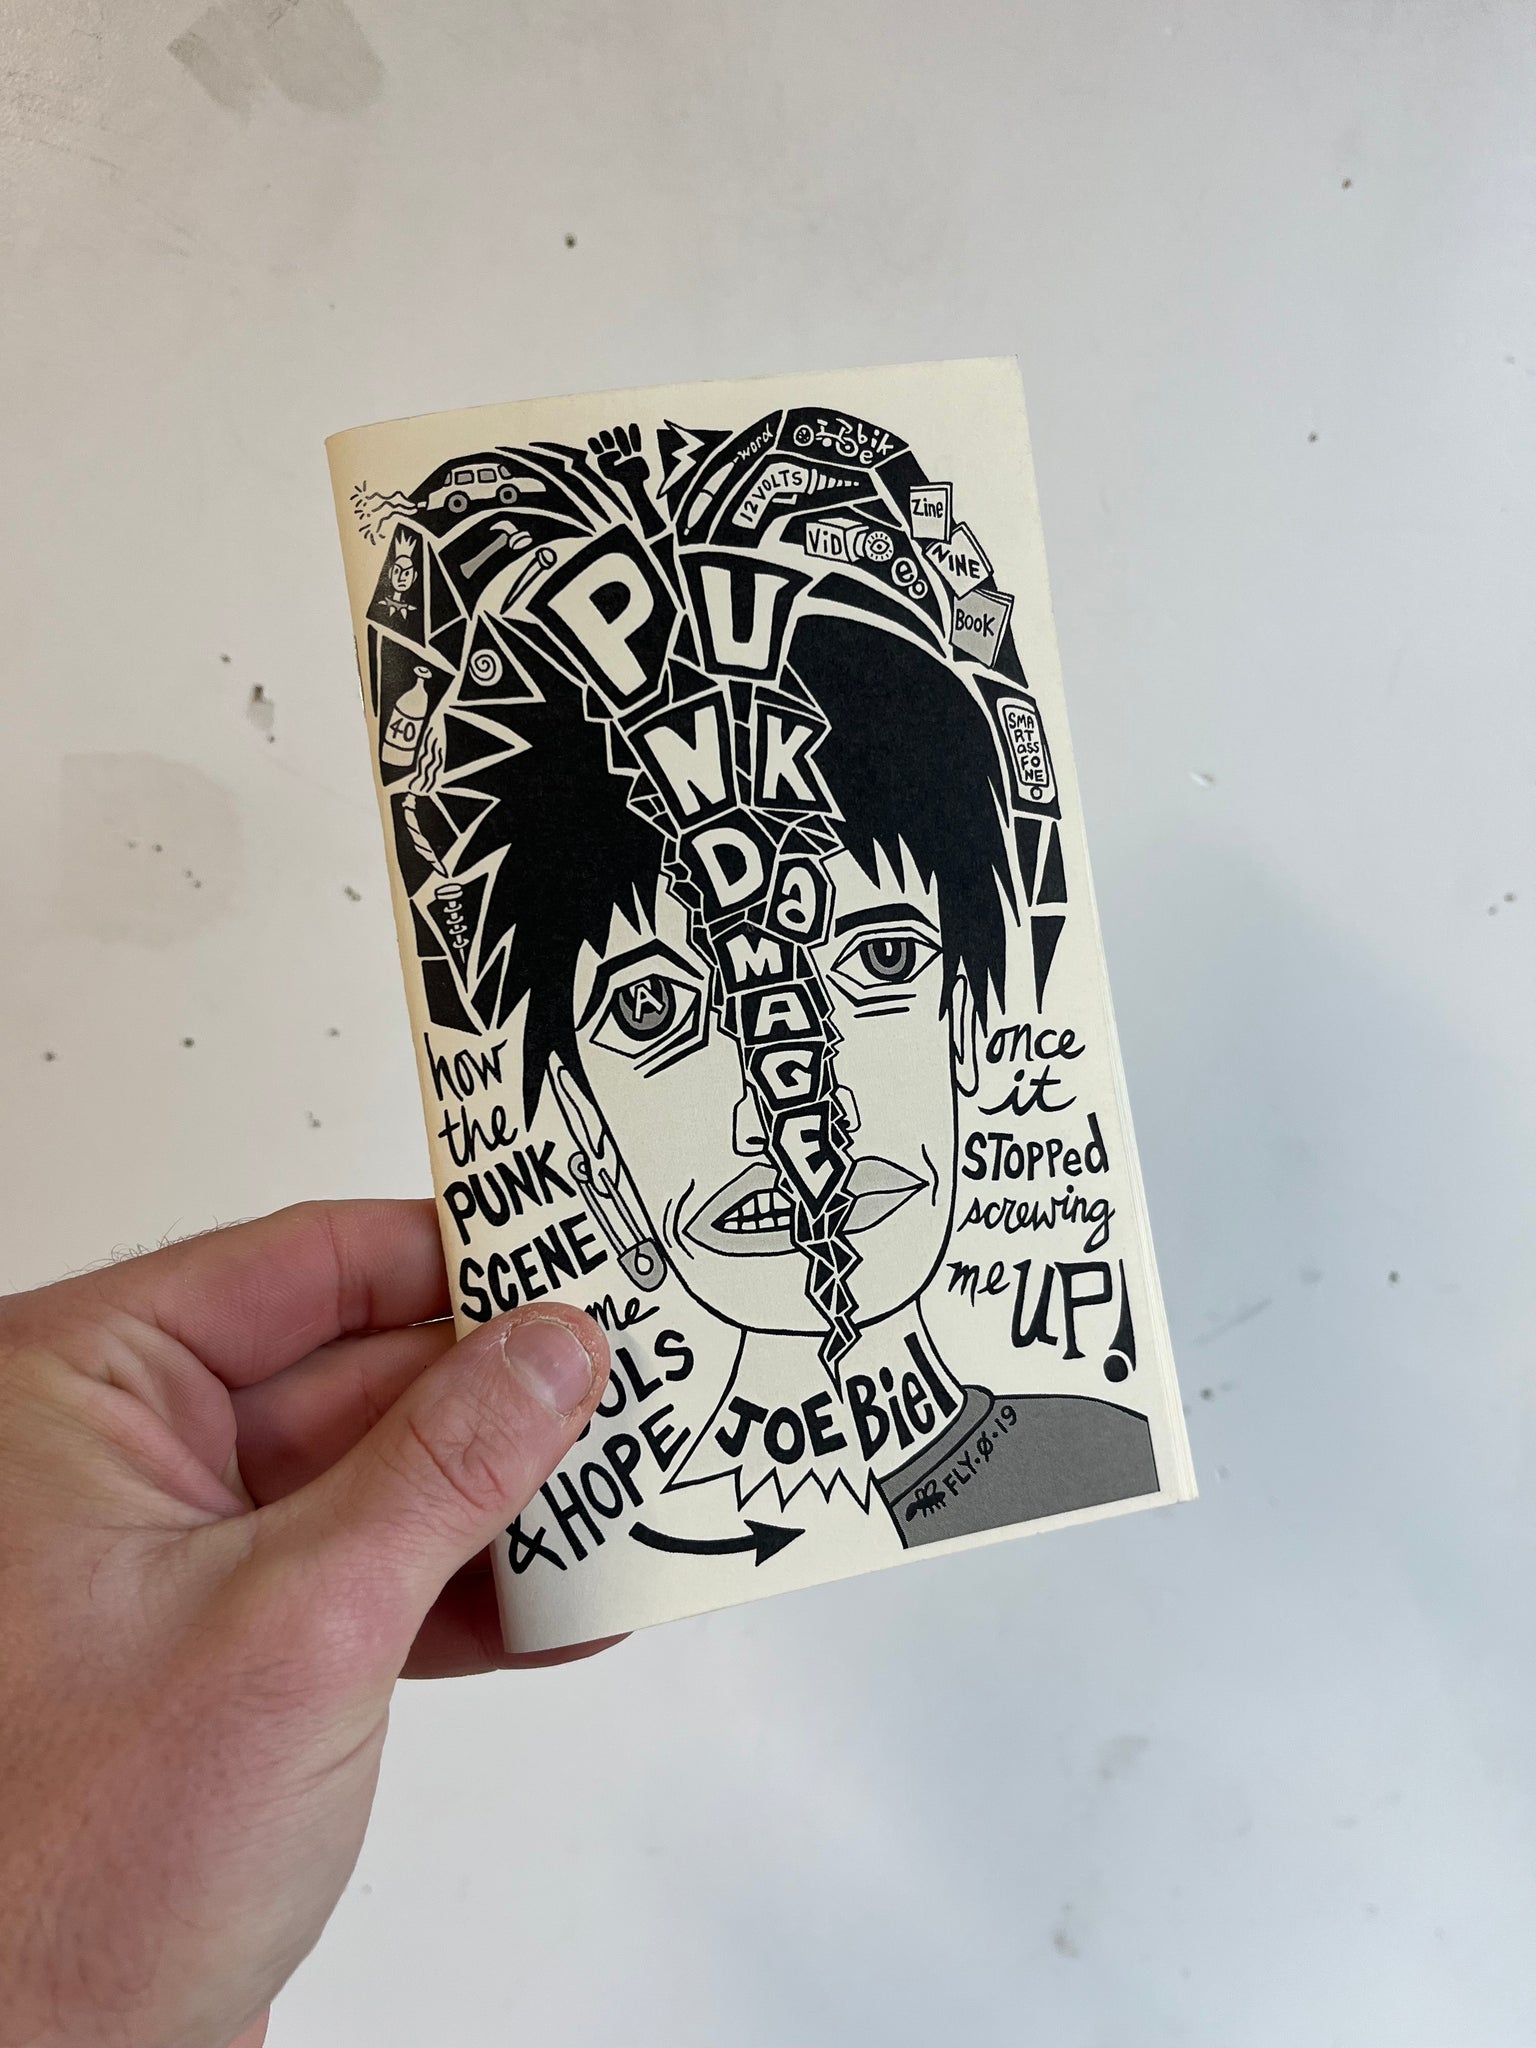 word
bike
12 VOLTS
ViDeo
Zine
NINE
BOOK
40
SMA
RT
ass
FO
NE
PU
NK
Da
M
A
G
E
A
how
the
PUNK
SCENE
me
& HOPE
once
it
STOPPed
screwing
me UP!
JOE Biel
FLY·Ø·19